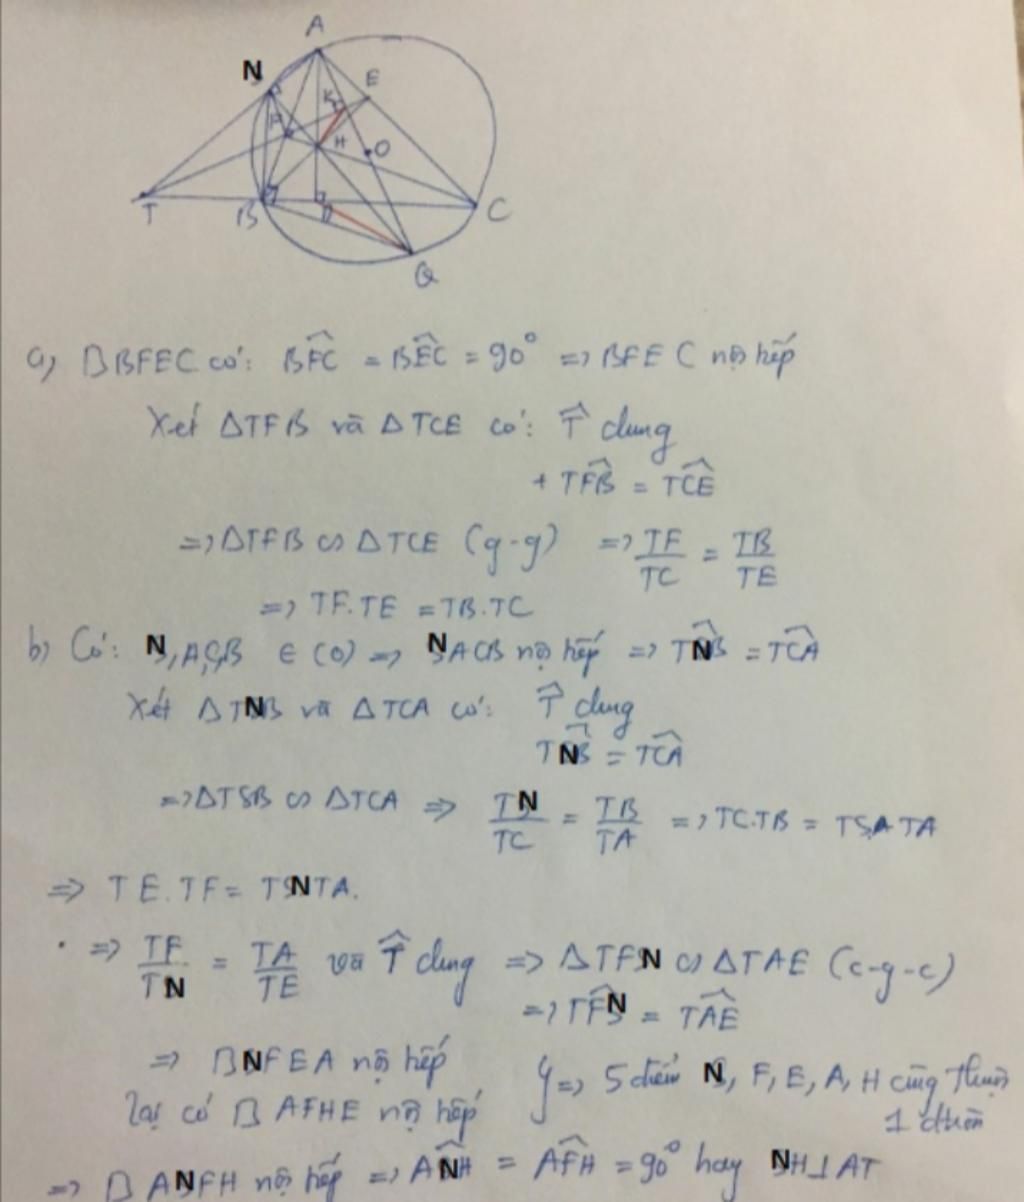 A
N
E
K
F
H
O
T
B
D
C
Q
a) □BFEC có: \widehat{BFC} = \widehat{BEC} = 90° => BFEC nội tiếp
Xét ΔTFB và ΔTCE có: \widehat{T} chung
+ \widehat{TFB} = \widehat{TCE}
=> ΔTFB ∽ ΔTCE (g-g) => \frac{TF}{TC} = \frac{TB}{TE}
=> TF.TE = TB.TC
b) Có: N,A,C,B ∈ (O) => NACB nội tiếp => \widehat{TNB} = \widehat{TCA}
Xét ΔTNB và ΔTCA có: \widehat{T} chung
\widehat{TNB} = \widehat{TCA}
=> ΔTSB ∽ ΔTCA => \frac{TN}{TC} = \frac{TB}{TA} => TC.TB = TS.TA
=> TE.TF = TN.TA.
=> \frac{TF}{TN} = \frac{TA}{TE} và \widehat{T} chung => ΔTFN ∽ ΔTAE (c-g-c)
=> \widehat{TFN} = \widehat{TAE}
=> □NFEA nội tiếp
Lại có □AFHE nội tiếp } => 5 điểm N, F, E, A, H cùng thuộc
1 đtròn
=> □ANFH nội tiếp => \widehat{ANH} = \widehat{AFH} = 90° hay NH⊥AT